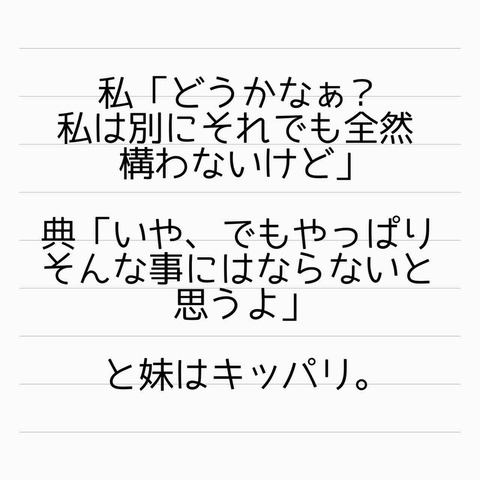 私「どうかなぁ？
私は別にそれでも全然
構わないけど」
典「いや、でもやっぱり
そんな事にはならないと
思うよ」
と妹はキッパリ。